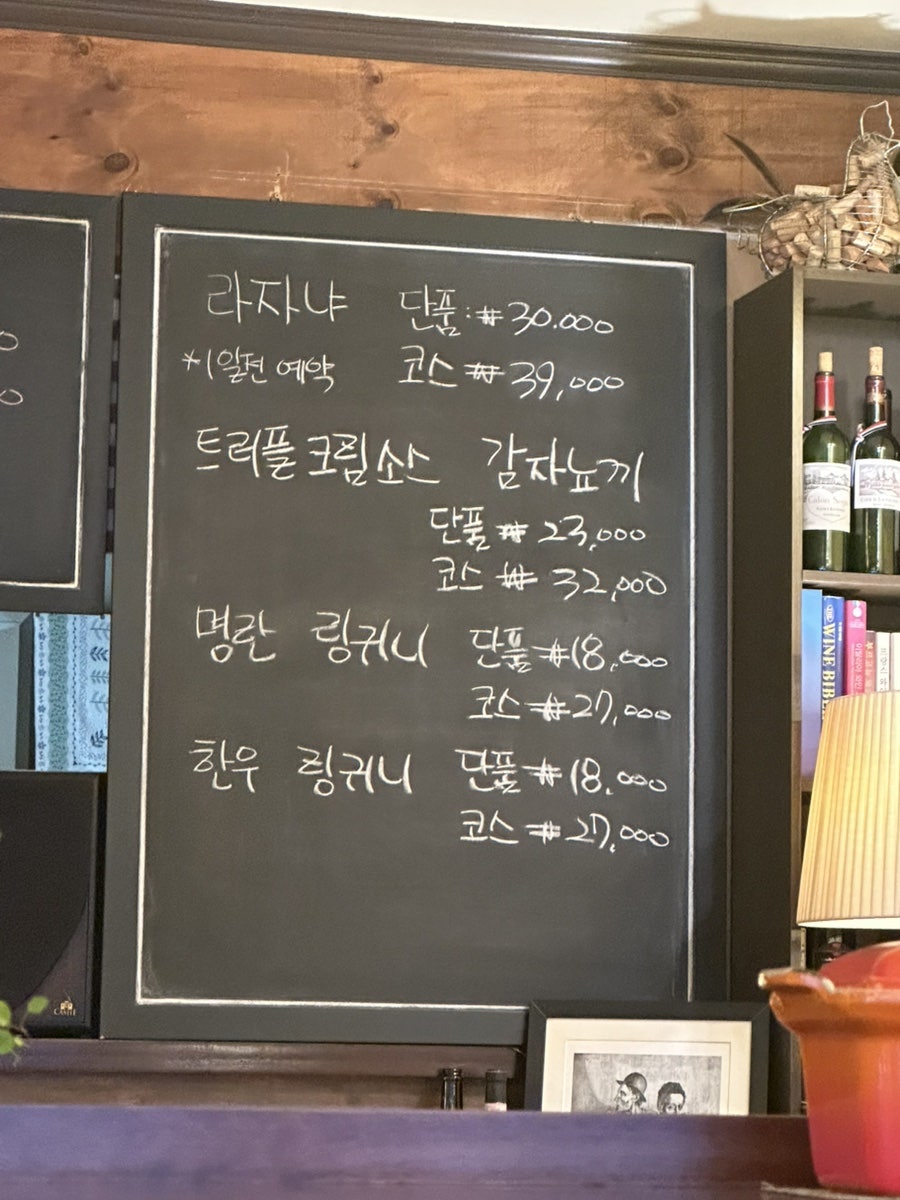 라자냐 단품: ₩30.000
*1일전 예약 코스 ₩39,000
트러플크림소스 감자뇨끼
단품 ₩23,000
코스 ₩32,000
명란 링귀니 단품 ₩18,000
코스 ₩27,000
한우 링귀니 단품 ₩18,000
코스 ₩27,000
WINE BIBL
CASTLE